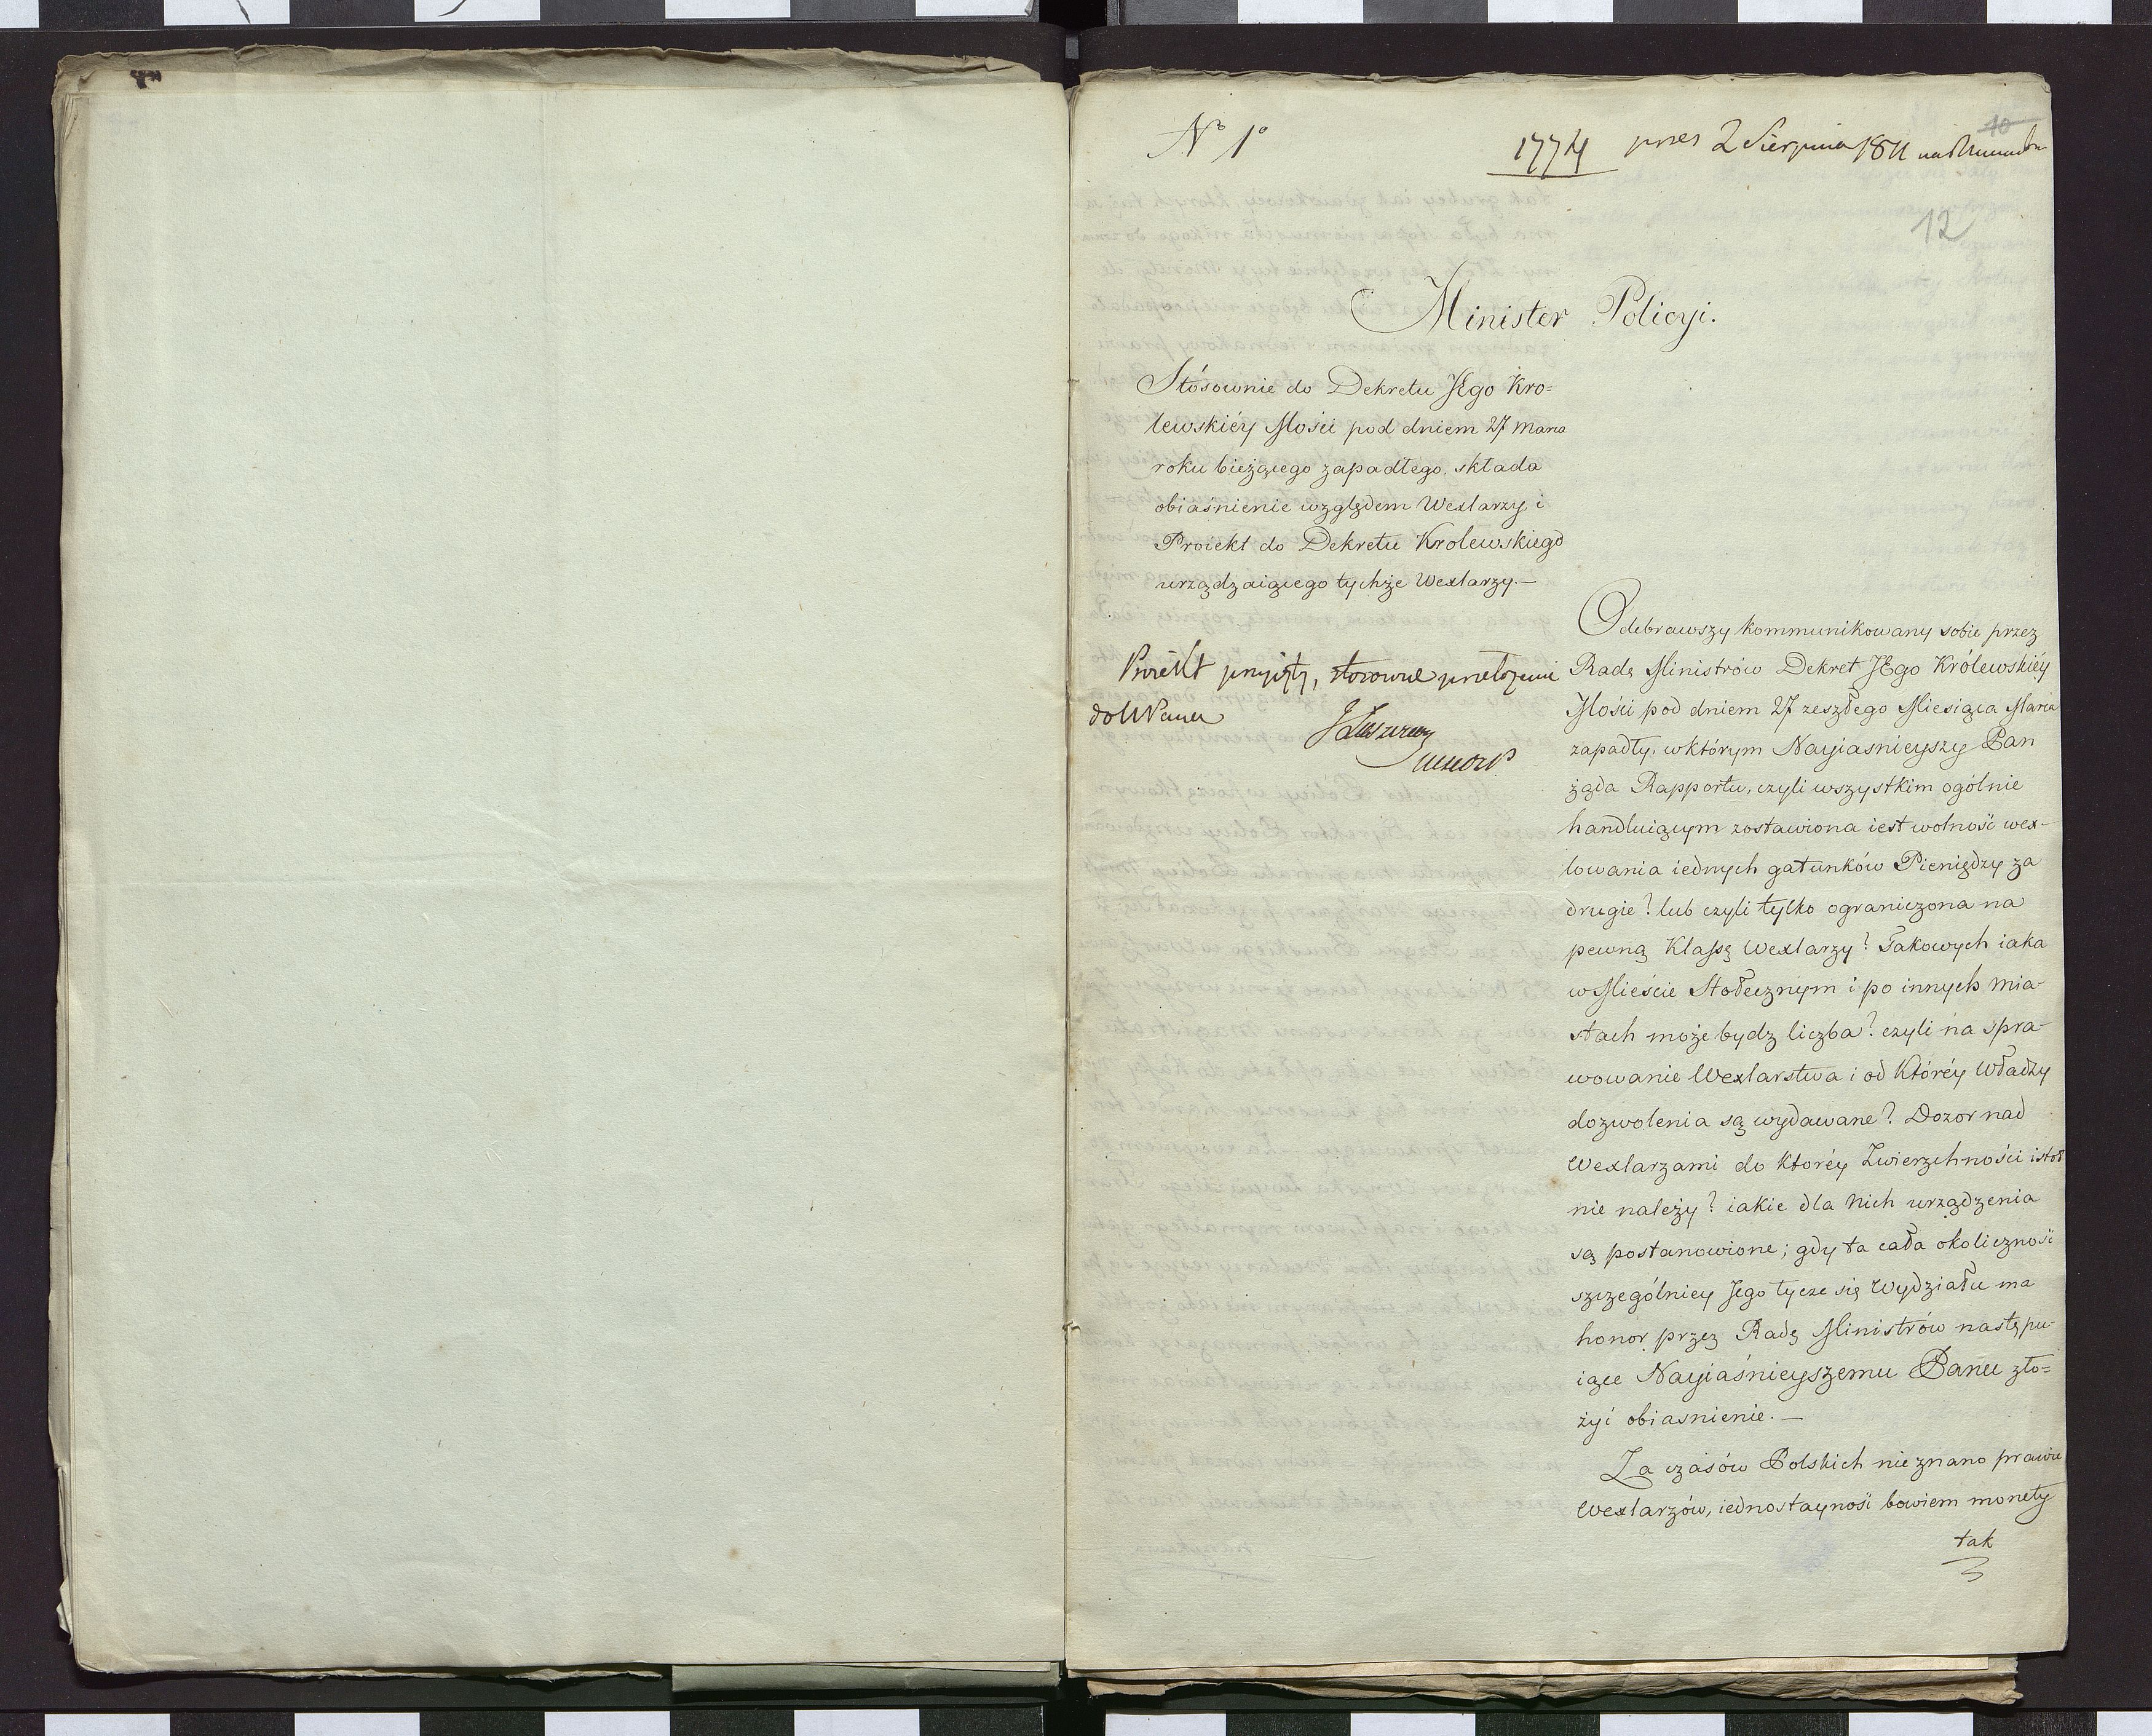 No 1o
1774 pres 2 Sierpnia 1811
10
12
Minister Policyi.
Stósownie do Dekretu JEgo Kro=
lewskiéy Mości pod dniem 27 Marca
roku bieżącego zapadłego, składa
obiaśnienie względem Wexlarzy i
Proiekt do Dekretu Krolewskiego
urządzaiącego tychże Wexlarzy.—
Proiekt przyięty, stosowne przełożenie
do NPana
Odebrawszy kommunikowany sobie przez
Radę Ministrów Dekret JEgo Królewskiéy
Mości pod dniem 27 zeszłego Miesiąca Marca
zapadły, w którym Nayiasnieyszy Pan
żąda Rapportu, czyli wszystkim ogólnie
handluiącym zostawiona iest wolność wex-
lowania iednych gatunków Pieniędzy za
drugie? lub czyli tylko ograniczona na
pewną Klassę Wexlarzy? Takowych iaka
w Mieście Stołecznym i po innych mia-
stach może bydz liczba? czyli na spra-
wowanie Wexlarstwa i od któréy Władzy
dozwolenia są wydawane? Dozor nad
Wexlarzami do któréy Zwierzchności istot
nie należy? iakie dla nich urządzenia
są postanowione; gdy ta cała okoliczność
szczególniey Jego tycze się Wydziału ma
honor przez Radę Ministrów nastę̨pu-
iące Nayiaśnieyszemu Panu zło=
żyć obiasnienie.—
Za czasów Polskich nie znano prawie
Wexlarzów, iednostayność bowiem monety
tak